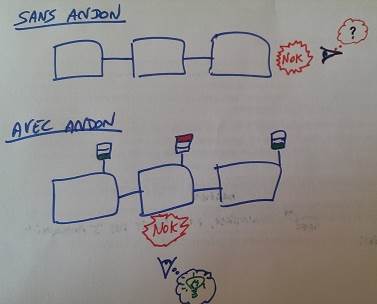 SANS ANDON
NOK
?
AVEC ANDON
NOK